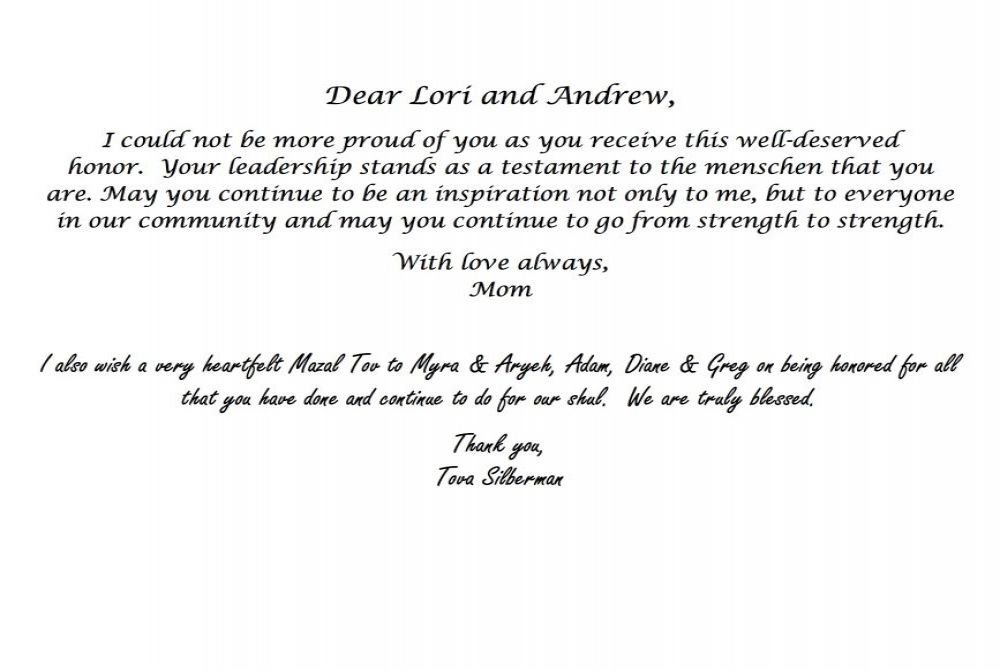 Dear Lori and Andrew,
I could not be more proud of you as you receive this well-deserved
honor.  Your leadership stands as a testament to the menschen that you
are. May you continue to be an inspiration not only to me, but to everyone
in our community and may you continue to go from strength to strength.
With love always,
Mom
I also wish a very heartfelt Mazal Tov to Myra & Aryeh, Adam, Diane & Greg on being honored for all
that you have done and continue to do for our shul.  We are truly blessed.
Thank you,
Tova Silberman